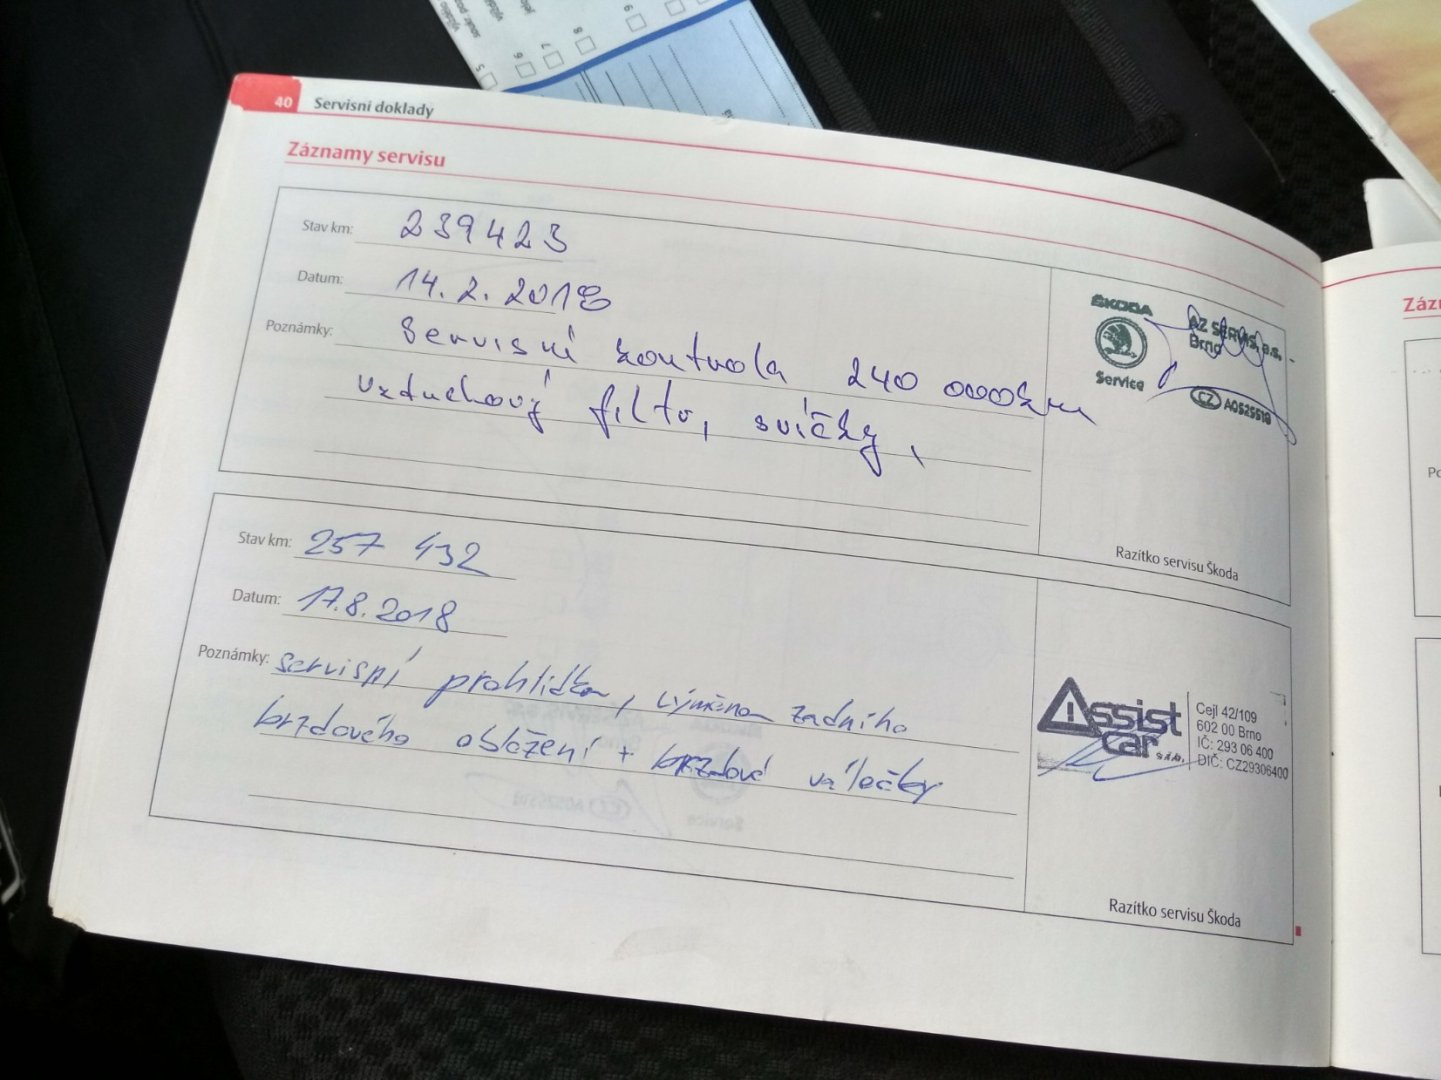 40 Servisní doklady
Záznamy servisu
Stav km: 239423
Datum: 14.2.2018
Poznámky: Servisní kontrola 240 000km
vzduchový filtr, svíčky,
ŠKODA
Service
AZ SERVIS, a.s.
Brno
CZ A0525518
Razítko servisu Škoda
Stav km: 257 432
Datum: 17.8.2018
Poznámky: servisní prohlídka, výměna zadního
brzdového obložení + brzdové válečky
Assist
car s.r.o.
Cejl 42/109
602 00 Brno
IČ: 293 06 400
DIČ: CZ29306400
Razítko servisu Škoda
5
6
7
8
9